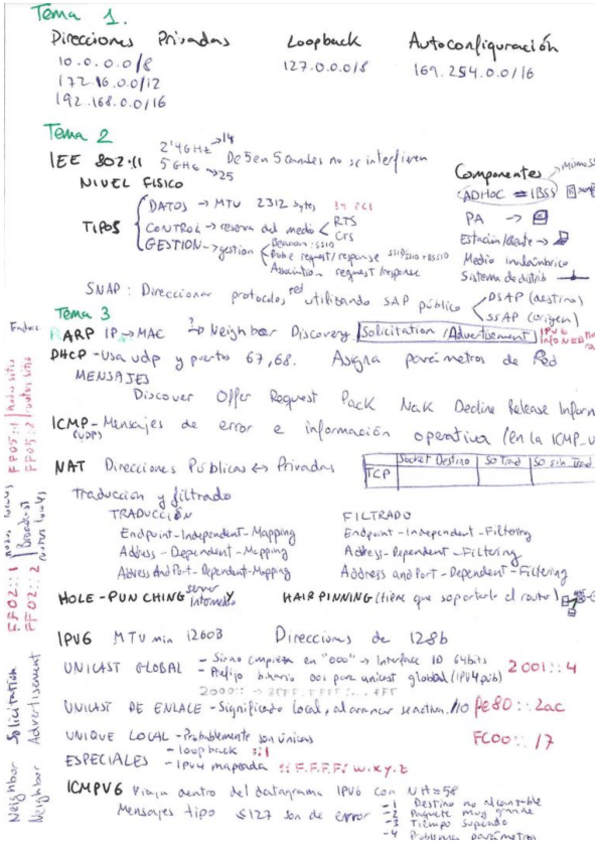 Tema 1.
Direcciones Privadas Loopback Autoconfiguración
10.0.0.0/8 127.0.0.0/8 169.254.0.0/16
172.16.0.0/12
192.168.0.0/16
Tema 2
IEE 802.11 2'4GHz → 14 De 5 en 5 canales no se interfieren
5 GHz → 25
NIVEL FISICO
Componentes
ADHOC = IBSS
TIPOS
DATOS → MTU 2312 bytes
CONTROL → reserva del medio < RTS
CTS
GESTION → gestion Beacon: SSID
Probe request/response SSID/SSID + BSSID
Association request/response
PA →
Estación/cliente →
Medio inalámbrico
Sistema de distrib
SNAP: Direccionar protocolos red utilizando SAP público DSAP (destino)
SSAP (origen)
Tema 3
ARP IP → MAC Neighbor Discovery Solicitation / Advertisement
DHCP - Usa udp y puerto 67,68. Asigna parámetros de Red
MENSAJES
Discover Offer Request Pack Nak Decline Release Inform
ICMP - Mensajes de error e información operativa (en la ICMP_
(UDP)
NAT Direcciones Públicas ↔ Privadas
Socket Destino
TCP
Traducción y filtrado
TRADUCCIÓN FILTRADO
Endpoint-Independent-Mapping Endpoint-Independent-Filtering
Address-Dependent-Mapping Address-Dependent-Filtering
Address And Port-Dependent-Mapping Address and Port-Dependent-Filtering
HOLE-PUNCHING server Intermedio HAIRPINNING (tiene que soportarlo el router)
IPV6 MTU min 1280B Direcciones de 128b
UNICAST GLOBAL - Si no empieza en "000" → Interface ID 64bits
- Prefijo binario 001 para unicast global (IPV4 pub) 2001::4
UNICAST DE ENLACE - Significado local, al arrancar se activa. /10 fe80::2ac
UNIQUE LOCAL - Probablemente son únicas FC00::/7
ESPECIALES - loopback ::1
- IPv4 mapeada ::F.F.F.F: w.x.y.z
ICMPV6 Viaja dentro del datagrama IPV6 con NH=58
Mensajes tipo ≤127 son de error
-1 Destino no alcanzable
-2 Paquete muy grande
-3 Tiempo superado
-4 Problemas parámetros
FF05::2
FF02::1
FF02::2
Neighbor Solicitation
Neighbor Advertisement